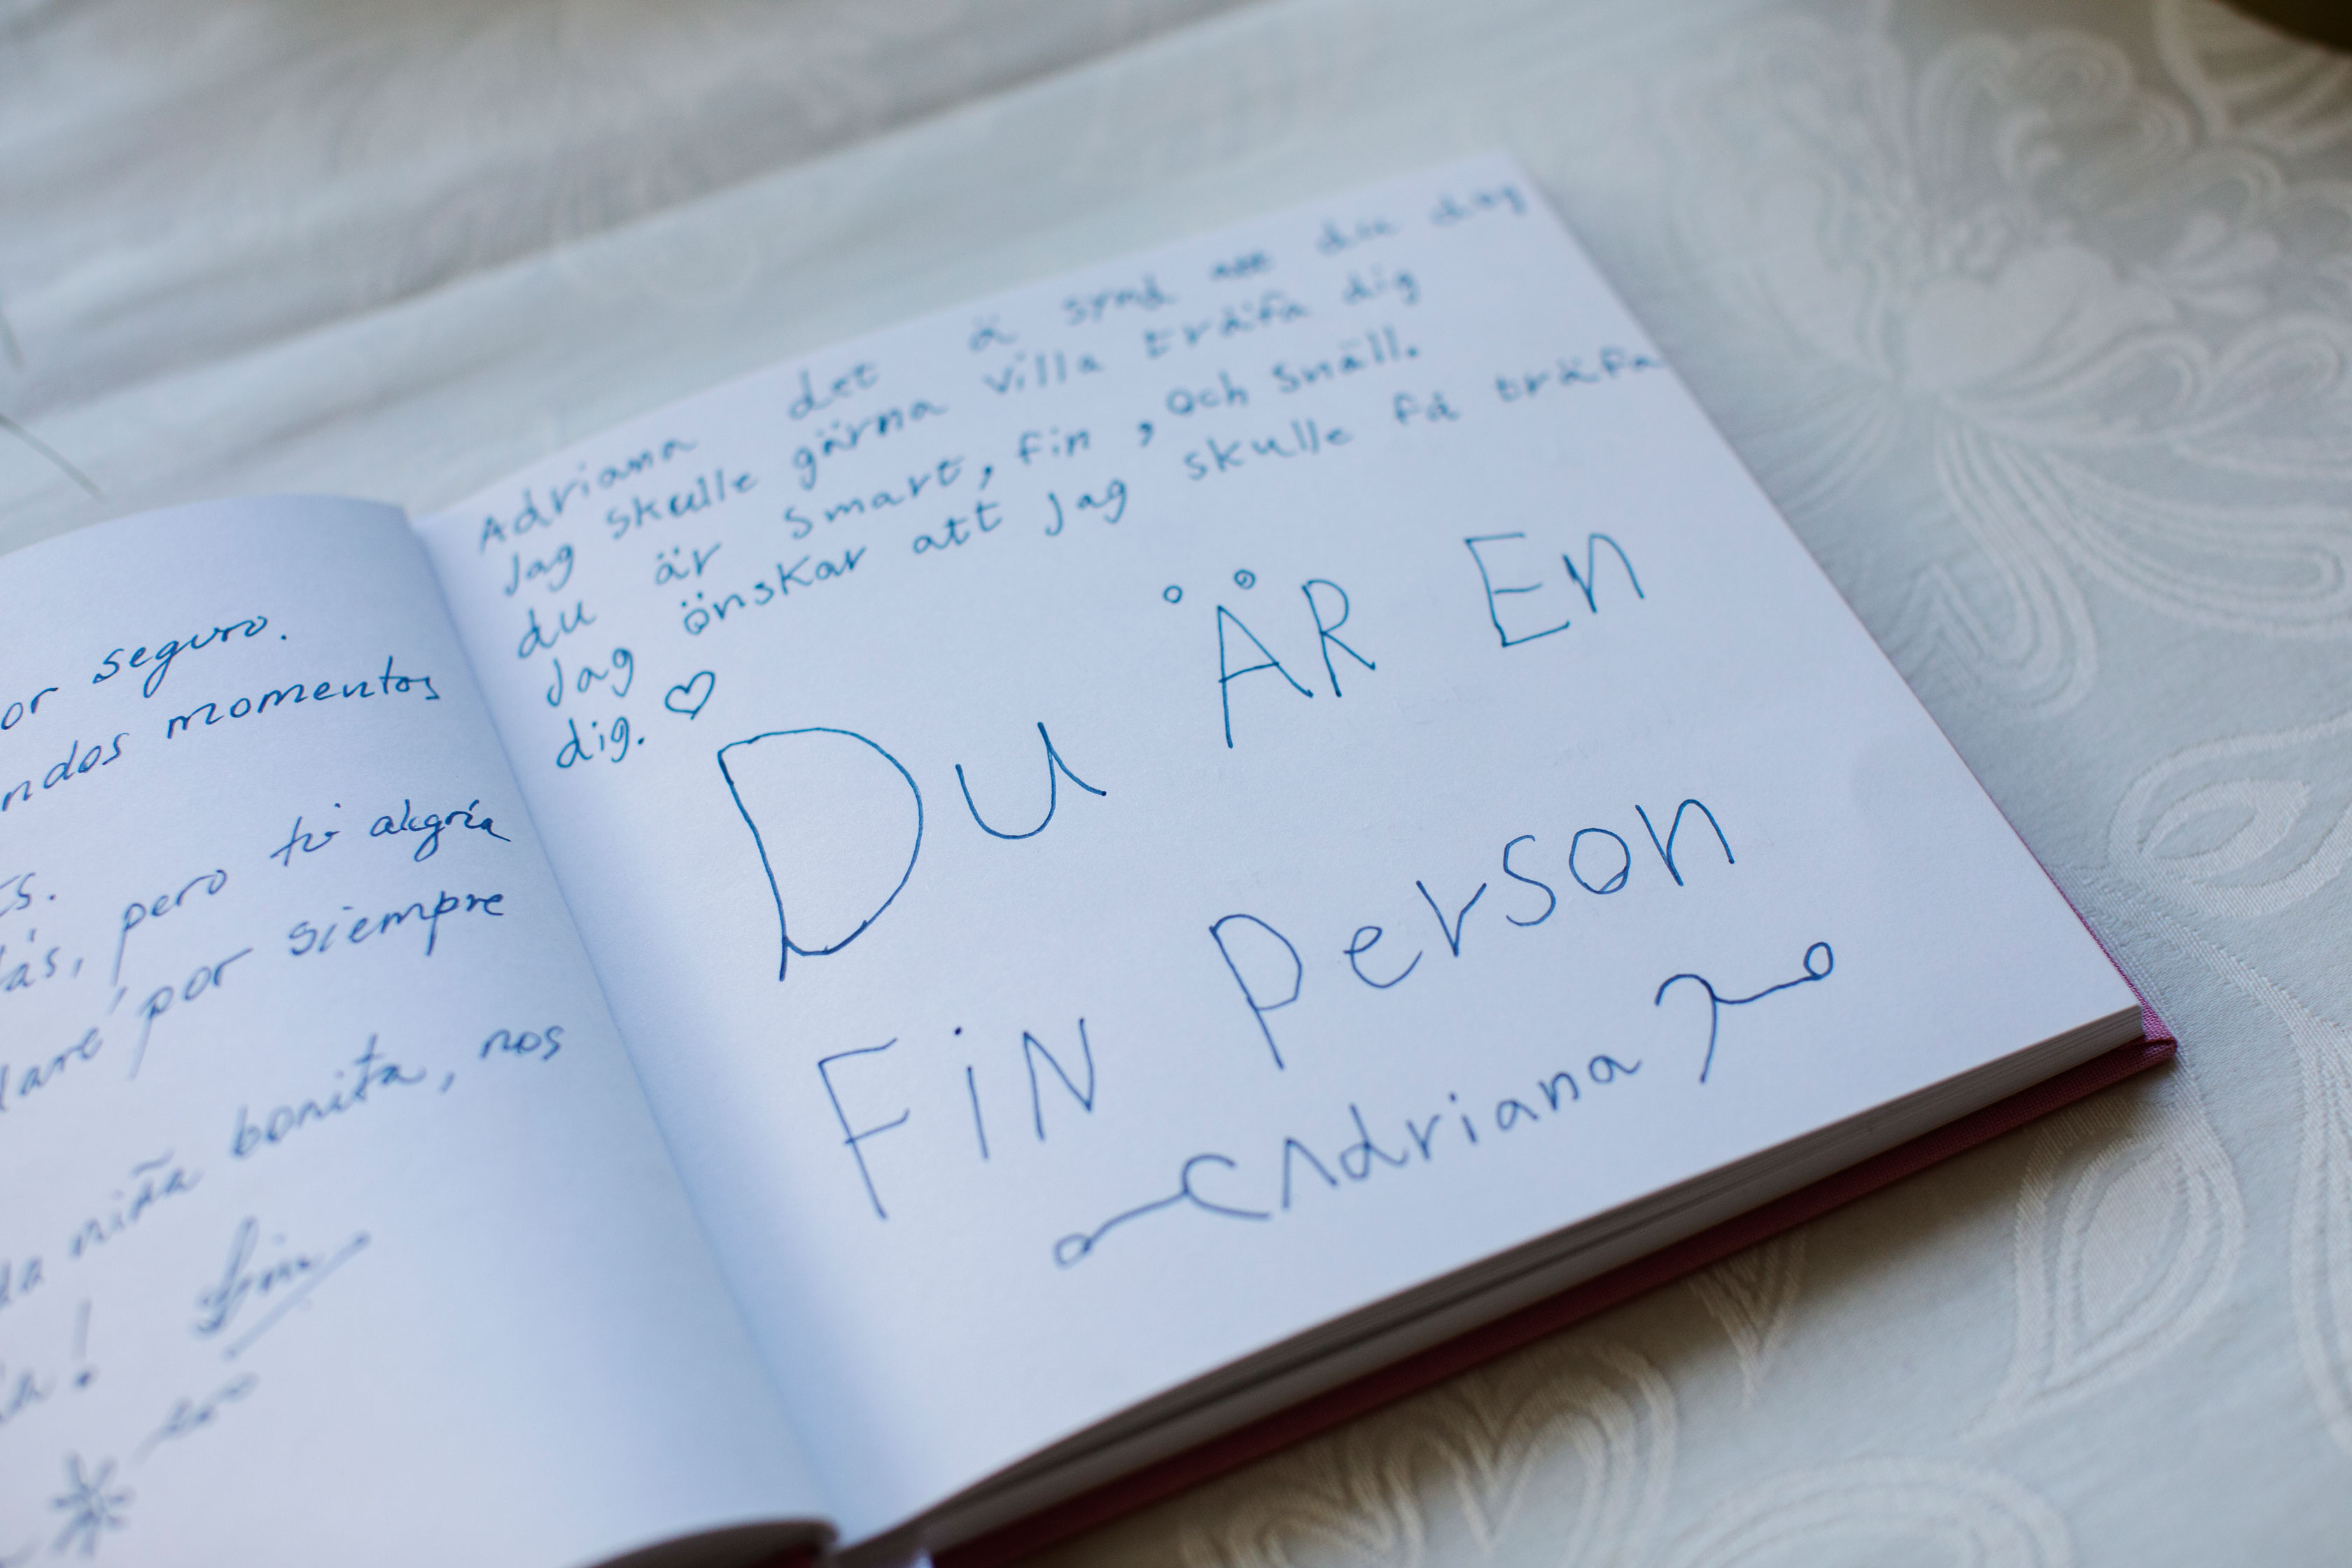 or seguro.
ndos momentos
s.
ás, pero tú alegría
daré por siempre
da niña bonita, nos
a!
Adriana det ä synd att du dog
Jag skulle gärna villa träfa dig
du är smart, fin, och snäll.
Jag önskar att jag skulle få träfa
dig. ♡
Du ÄR En
FiN Person
Adriana